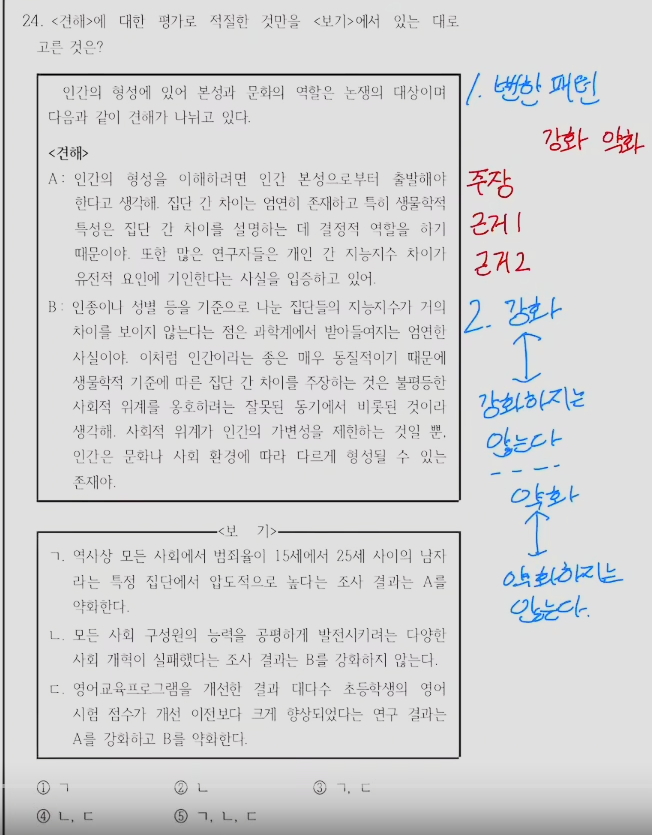 24. <견해>에 대한 평가로 적절한 것만을 <보기>에서 있는 대로
고른 것은?
인간의 형성에 있어 본성과 문화의 역할은 논쟁의 대상이며
다음과 같이 견해가 나뉘고 있다.
<견해>
A: 인간의 형성을 이해하려면 인간 본성으로부터 출발해야
한다고 생각해. 집단 간 차이는 엄연히 존재하고 특히 생물학적
특성은 집단 간 차이를 설명하는 데 결정적 역할을 하기
때문이야. 또한 많은 연구자들은 개인 간 지능지수 차이가
유전적 요인에 기인한다는 사실을 입증하고 있어.
B: 인종이나 성별 등을 기준으로 나눈 집단들의 지능지수가 거의
차이를 보이지 않는다는 점은 과학계에서 받아들여지는 엄연한
사실이야. 이처럼 인간이라는 종은 매우 동질적이기 때문에
생물학적 기준에 따른 집단 간 차이를 주장하는 것은 불평등한
사회적 위계를 옹호하려는 잘못된 동기에서 비롯된 것이라
생각해. 사회적 위계가 인간의 가변성을 제한하는 것일 뿐,
인간은 문화나 사회 환경에 따라 다르게 형성될 수 있는
존재야.
<보 기>
ㄱ. 역사상 모든 사회에서 범죄율이 15세에서 25세 사이의 남자
라는 특정 집단에서 압도적으로 높다는 조사 결과는 A를
약화한다.
ㄴ. 모든 사회 구성원의 능력을 공평하게 발전시키려는 다양한
사회 개혁이 실패했다는 조사 결과는 B를 강화하지 않는다.
ㄷ. 영어교육프로그램을 개선한 결과 대다수 초등학생의 영어
시험 점수가 개선 이전보다 크게 향상되었다는 연구 결과는
A를 강화하고 B를 약화한다.
① ㄱ ② ㄴ ③ ㄱ, ㄷ
④ ㄴ, ㄷ ⑤ ㄱ, ㄴ, ㄷ
1. 뻔한 패턴
강화 약화
주장
근거 1
근거 2
2. 강화
강화하지는
않는다
약화
약화하지는
않는다.